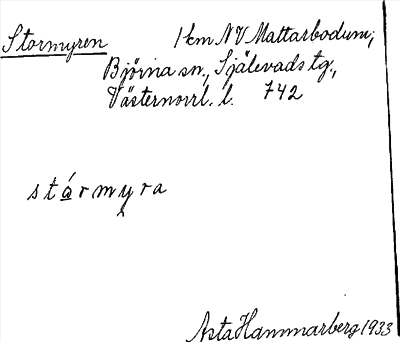 Stormyren 1 km NV Mattarbodum,
Björna sn., Själevads tg.,
Västernorrl. l. 742
stármyra
Asta Hammarberg 1933